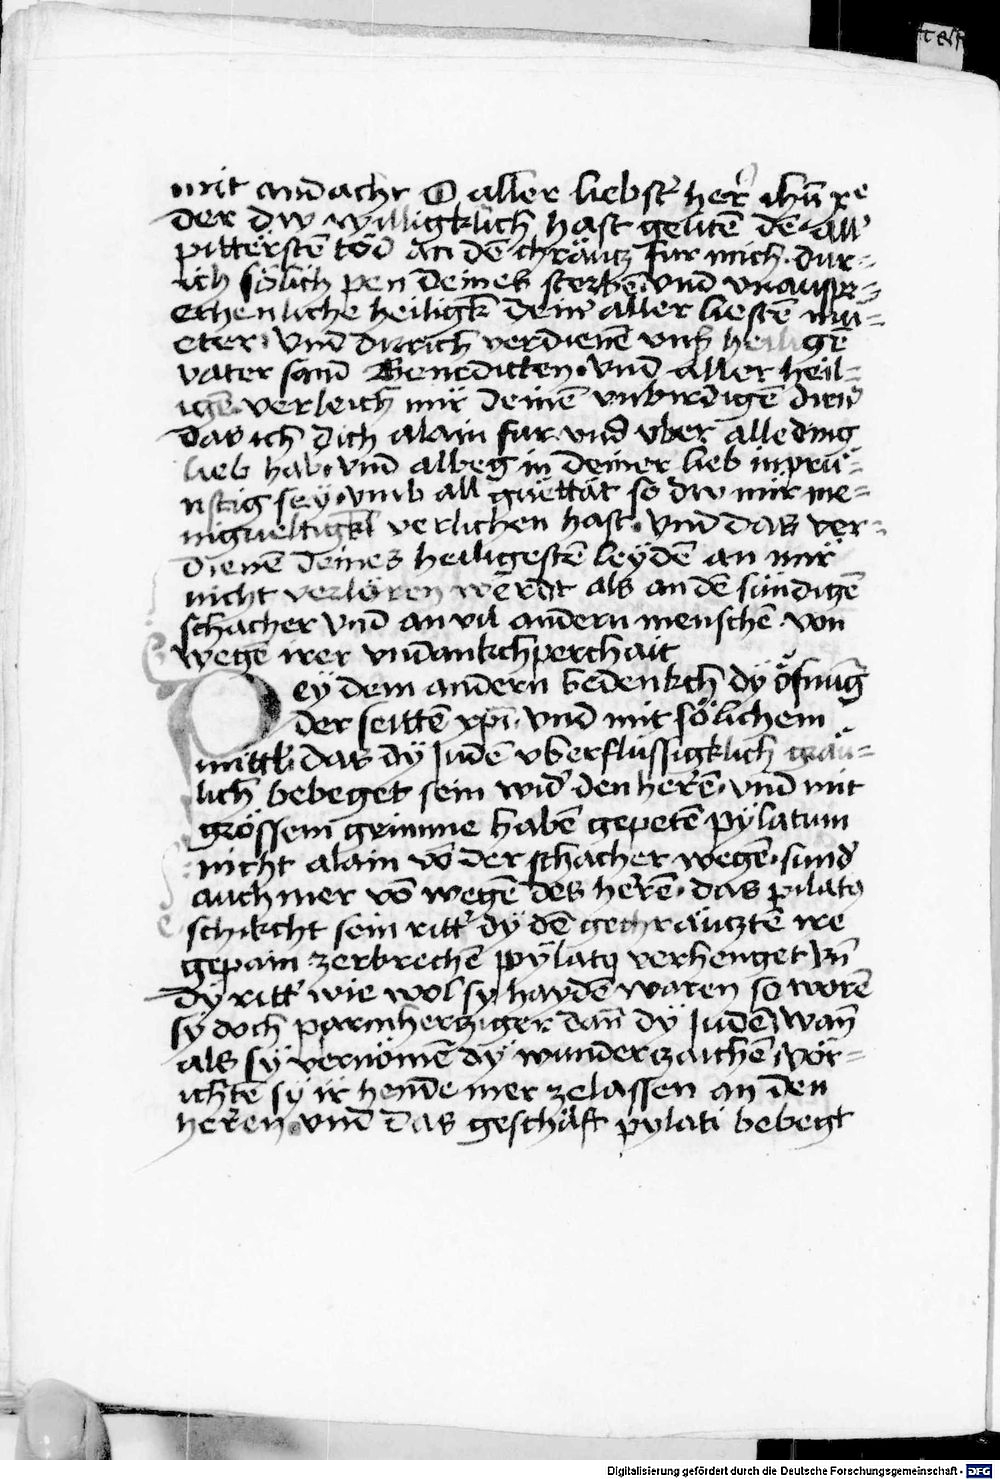 mit andacht O aller liebst' her' ihū xe
der dw wylligklich hast geliten den all'
pittersten tod an den chräutz fur mich. dur=
ich sölich pen deines sterbēs vnd vnausspr=
echenliche heiligk deinr aller liestē mu=
eter. Vnd durich verdienē vns heiligē
vater sand Benedicten. vnd aller heil=
igē. verleich mir deinē vnbirdigē dirñ
das ich dich alain fur vnd vber alle ding
lieb hab. vnd albeg in deiner lieb inprü=
nstig sey. vmb all güettät so dw mir me=
nigueltigkl verlichen hast. Vnd das ver=
dienē deines heiligestē leydē an mir
nicht verloren werdt als an dē sündigē
schacher vnd an vil andern menschē von
wegē irer vndankchperchait
ey dem andern bedenkch dy öfnūg
der seittē xpī. vnd mit sölichem
mittl. das dy Judē vberflüssigklich gräu=
lich bebeget sein wid' den herrē. vnd mit
grössem grimme habē gepetē pylatum
nicht alain vō der schacher wegē. sund'
auch mer vō wegē des herrē. das pilatus
schikcht sein ritt' dy dē gechräutztē ire
gepain zerbrechē pylatus verhenget vñ
dy ritt' wie wol sy haydē waren so worē
sy doch parmherziger dañ dy Judē Wañ
als sy vernömē dy wunderzaichē vör=
ichtē sy ir hende mer zelassen an den
herren. vnd das geschäft pylati bebegt
Digitalisierung gefördert durch die Deutsche Forschungsgemeinschaft - DFG